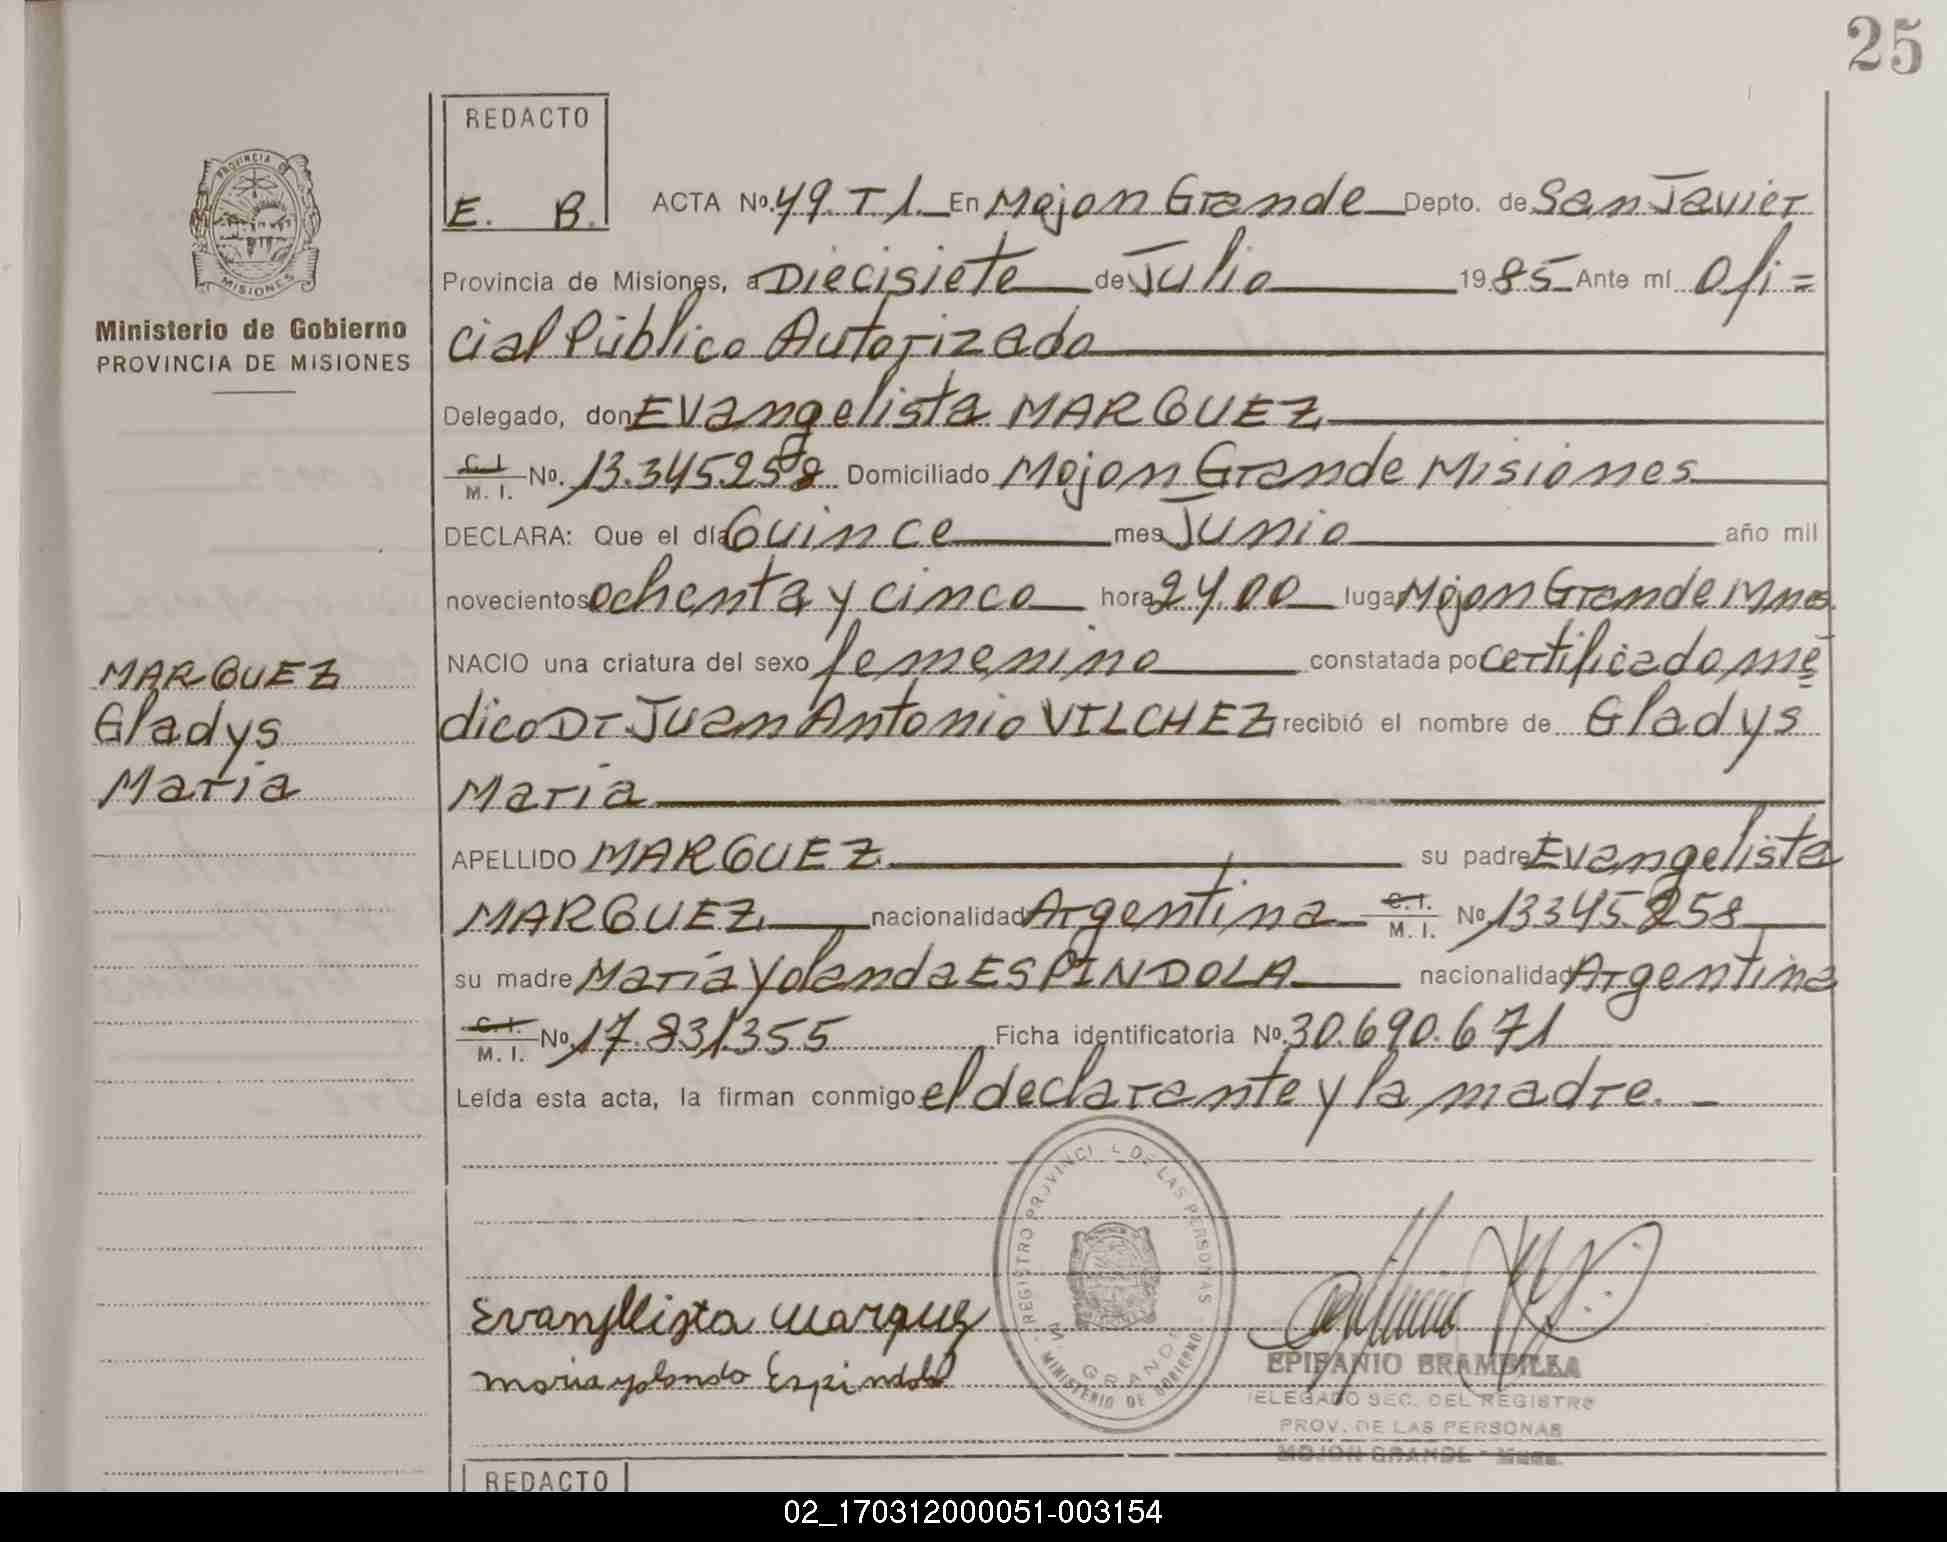 25
REDACTO
E. B.
ACTA Nº. 49. T 1. En Mojon Grande Depto. de San Javier
Provincia de Misiones, a Diecisiete de Julio 1985 Ante mí Ofi=
cial Público Autorizado
Delegado, don Evangelista MARQUEZ
C. I. / M. I. No. 13.345.258 Domiciliado Mojon Grande Misiones
DECLARA: Que el día Quince mes Junio año mil
novecientos ochenta y cinco hora 24.00 lugar Mojon Grande Mnes.
NACIO una criatura del sexo femenino constatada po certificado mé
dico Dr Juan Antonio VILCHEZ recibió el nombre de Gladys
Maria
APELLIDO MARQUEZ su padre Evangelista
MARQUEZ nacionalidad Argentina C. I. / M. I. Nº 13345.258
su madre María Yolanda ESPINDOLA nacionalidad Argentina
C. I. / M. I. Nº. 17.831355 Ficha identificatoria Nº. 30.690.671
Leída esta acta, la firman conmigo el declarante y la madre. -
PROVINCIA DE
MISIONES
Ministerio de Gobierno
PROVINCIA DE MISIONES
MARQUEZ
Gladys
Maria
Evangelista Marquez
Maria yolanda Espindola
REGISTRO PROVINCI L DE LAS PERSONAS
M. GRANDE
MINISTERIO DE GOBIERNO
EPIFANIO BRAMBILLA
DELEGADO SEC. DEL REGISTRO
PROV. DE LAS PERSONAS
MOJON GRANDE - Mnes.
REDACTO
02_170312000051-003154